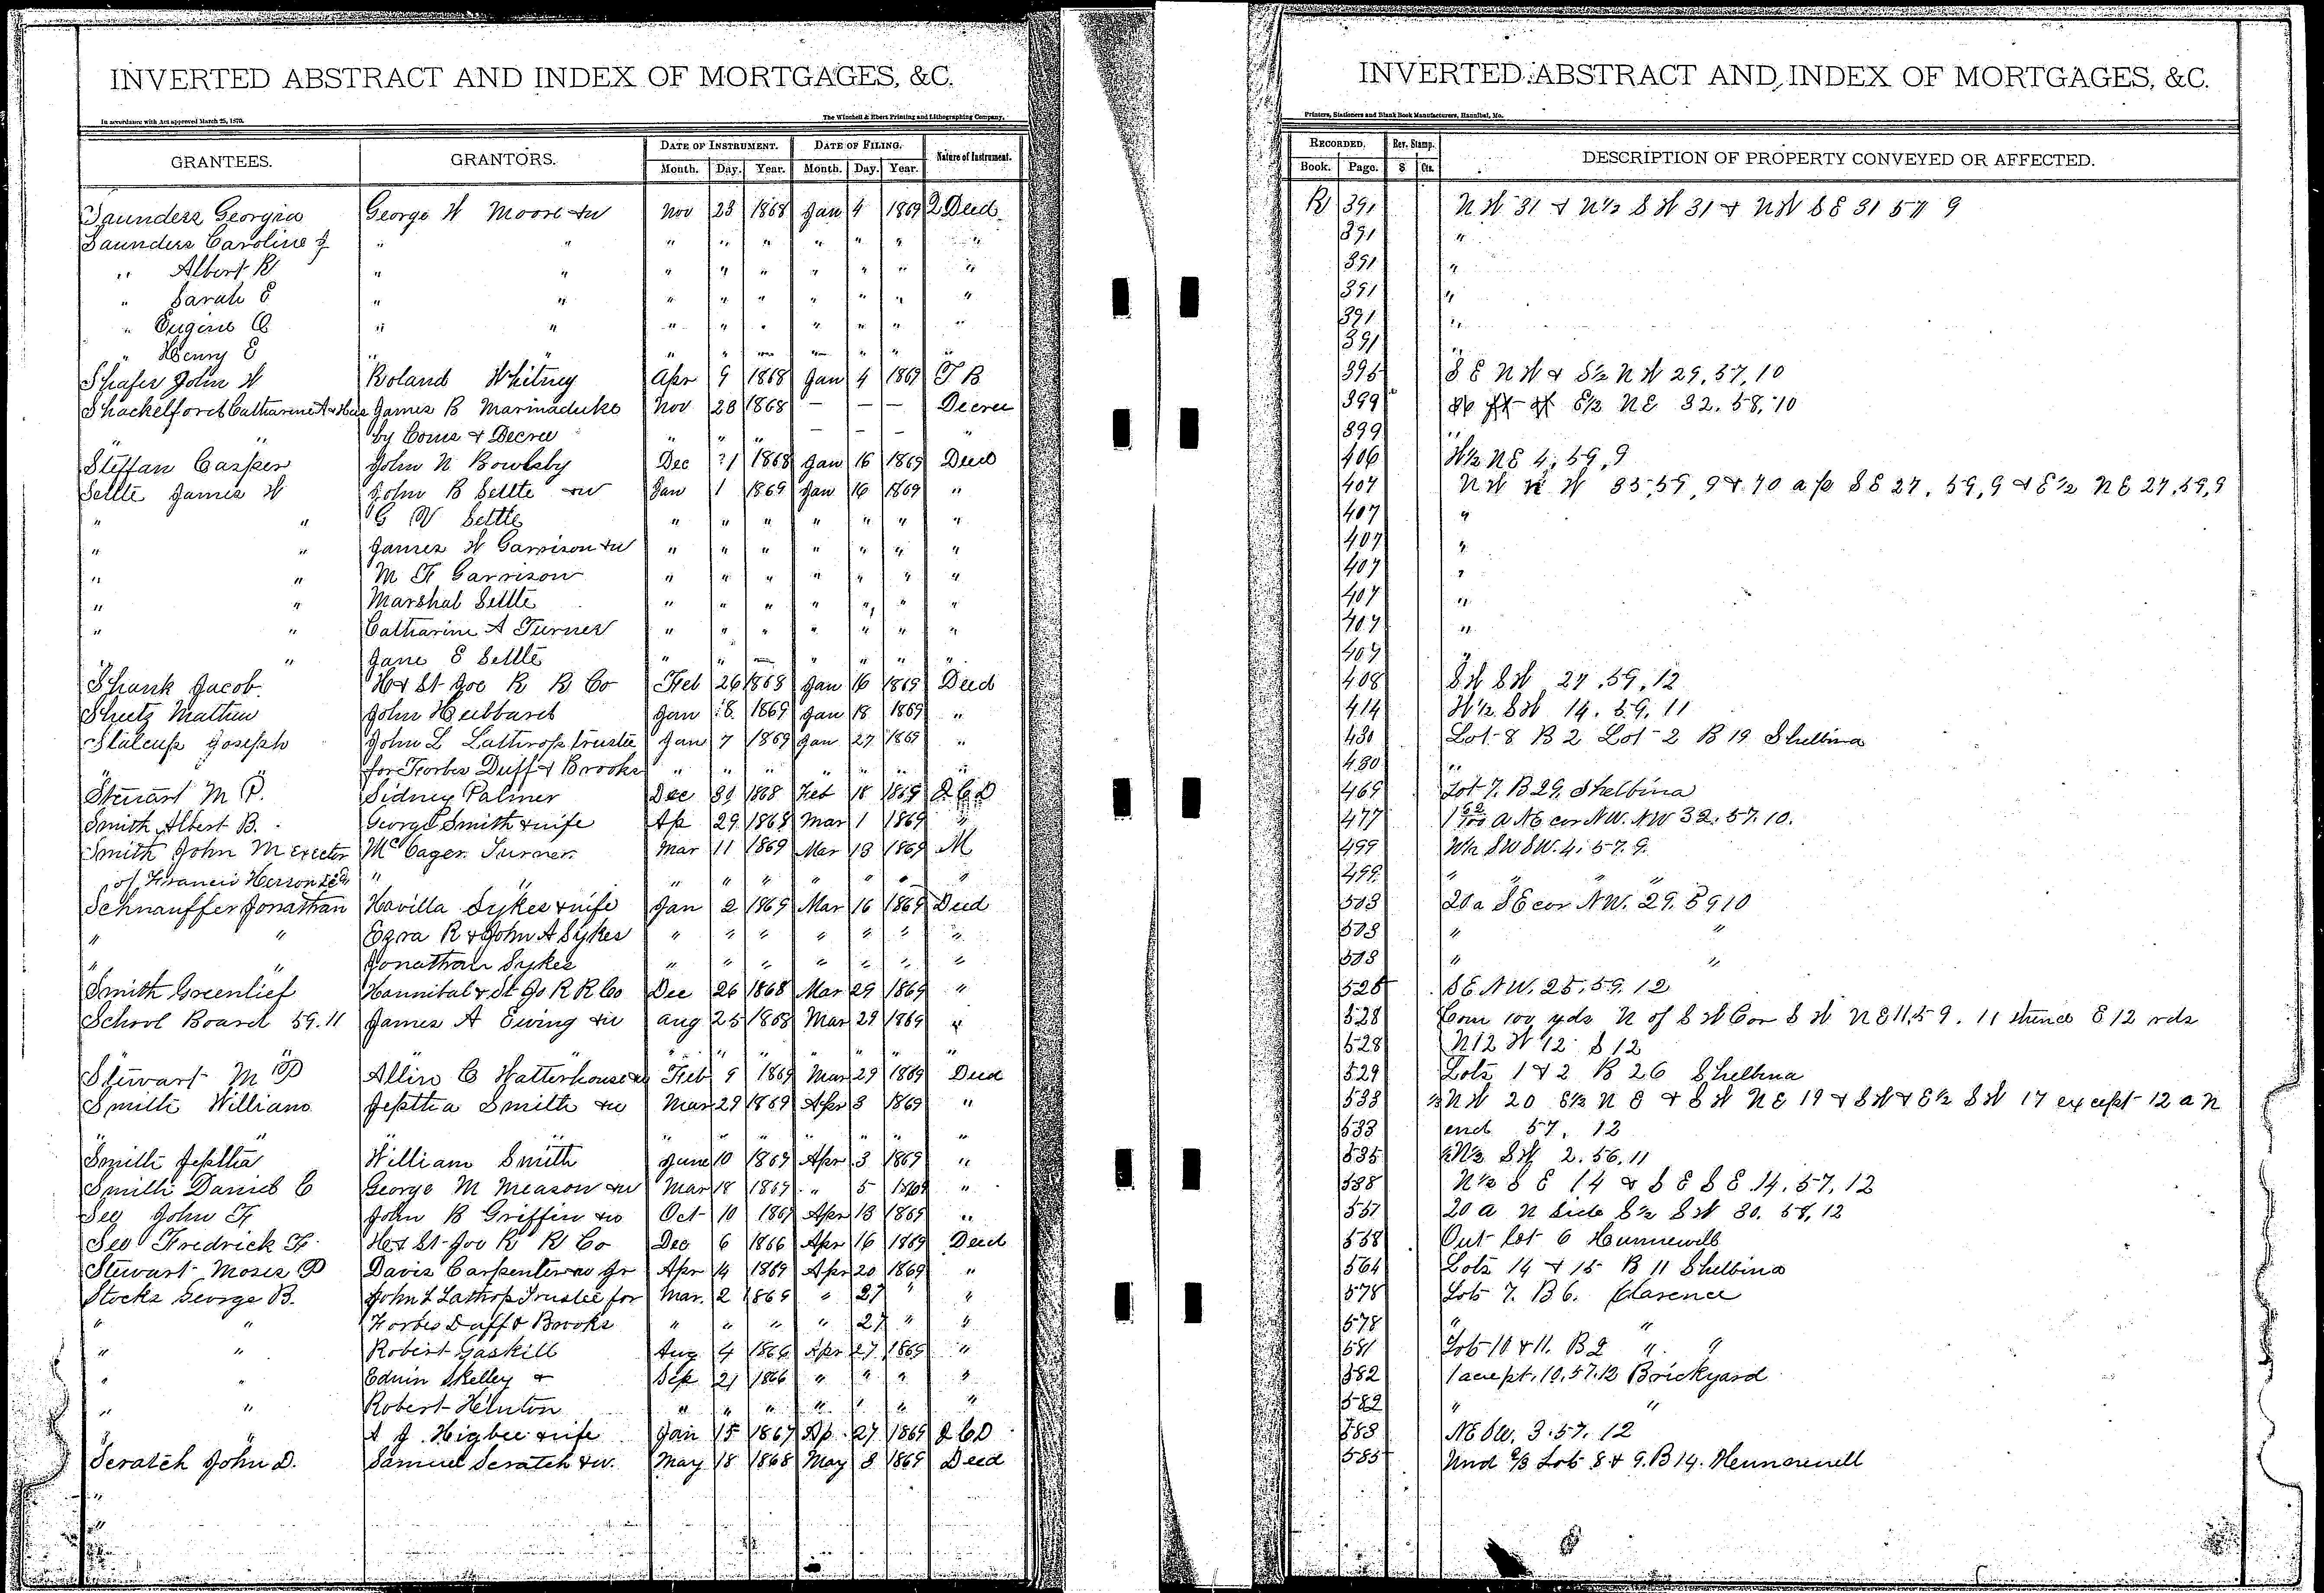 INVERTED ABSTRACT AND INDEX OF MORTGAGES, &C.
In accordance with Act approved March 25, 1870.
The Winchell & Ebert Printing and Lithographing Company,
GRANTEES. GRANTORS. DATE OF INSTRUMENT. DATE OF FILING. Nature of Instrument.
Month. Day. Year. Month. Day. Year.
Saunders Georgia George W Moore &w Nov 23 1868 Jan 4 1869 2 Deed
Saunders Caroline J " " " " " " " " "
" Albert R " " " " " " " " "
" Sarah E " " " " " " " " "
" Eugene C " " " " " " " " "
" Henry E " " " " " " " " "
Shafer John W Roland Whitney Apr 9 1868 Jan 4 1869 T B
Shackelford Catharine A James B Marmaduke Nov 28 1868 — — — Decree
" " by Coms & Decree " " " — — — "
Steffan Casper John N Bowlsby Dec 1868 Jan 16 1869 Deed
Settle James W John B Settle &w Jan 1 1869 Jan 16 1869 "
" " G W Settle " " " " " " "
" " James W Garrison &w " " " " " " "
" " M F Garrison " " " " " " "
" " Marshal Settle " " " " " " "
" " Catharine A Turner " " " " " " "
" " Jane E Settle " " " " " " "
Shank Jacob. H & St Joe R R Co Feb 26 1868 Jan 16 1869 Deed
Sheetz Mathew John Hubbard Jan 8 1869 Jan 18 1869 "
Stalcup Joseph John L Lathrop trustee Jan 7 1869 Jan 27 1869 "
" " for Forbes Duff & Brooks " " " " " " "
Stewart M P. Sidney Palmer Dec 30 1868 Feb 18 1869 Q C D
Smith Albert B. George Smith & wife Ap 29 1868 Mar 1 1869 "
Smith John M Exector McCager Turner Mar 11 1869 Mar 13 1869 M
of Francis Herron " " " " " " " "
Schnauffer Jonathan Havilla Sykes & wife Jan 2 1869 Mar 16 1869 Deed
" " Ezra R & John A Sykes " " " " " " "
" " Jonathan Sykes " " " " " " "
Smith Greenlief Hannibal & St Jo R R Co Dec 26 1868 Mar 29 1869 "
School Board 59.11 James A Ewing &w Aug 25 1868 Mar 29 1869 "
" " " " " " " "
Stewart M P Allin C Watterhouse &w Feb 9 1869 Mar 29 1869 Deed
Smith William Jeptha Smith &w Mar 29 1869 Apr 3 1869 "
" " " " " " " " "
Smith Jeptha William Smith June 10 1867 Apr 3 1869 "
Smith Daniel C George M Meason &w Mar 18 1867 " 5 1869 "
See John F John B Griffin &w Oct 10 1867 Apr 13 1869 "
See Fredrick F. H & St Joe R R Co Dec 6 1866 Apr 16 1869 Deed
Stewart Moses P Davis Carpenter Jr Apr 14 1869 Apr 20 1869 "
Stocks George B. John L Lathrop Trustee for Mar. 2 1869 " 27 " "
" " Forbes Duff & Brooks " " " " 27 " "
" " Robert Gaskill Aug 4 1866 Apr 27 1869 "
" " Edwin Skelley & Sep 21 1866 " " " "
" " Robert Hinton " " " " " " "
" " A J Higbee & wife Jan 15 1867 Ap 27 1869 Q C D
Scratch John D. Samuel Scratch &w. May 18 1868 May 8 1869 Deed
INVERTED ABSTRACT AND INDEX OF MORTGAGES, &C.
Printers, Stationers and Blank Book Manufacturers, Hannibal, Mo.
RECORDED. Rev. Stamp. DESCRIPTION OF PROPERTY CONVEYED OR AFFECTED.
Book. Page. $ Cts.
R 391 N W 31 & N½ S W 31 & N W S E 31 57 9
391 "
391 "
391 "
391 "
391 "
395 S E N W & S½ N W 29, 57, 10
399 E½ N E 32. 58. 10
399 "
406 W½ N E 4, 59, 9
407 N W N W 35, 59, 9 & 70 a p S E 27, 59, 9 & E½ N E 27, 59, 9
407 "
407 "
407 "
407 "
407 "
407 "
408 S W S W 27, 59, 12
414 W½ S W 14. 59. 11
430 Lot 8 B 2 Lot 2 B 19 Shelbina
430 "
469 Lot 7. B 29. Shelbina
477 1 62/100 a NE cor N.W. NW 32. 57. 10.
499 W½ SW SW. 4. 57. 9.
499 " " " "
503 20 a SE cor N W. 29. 59 10
503 " "
503 " "
525 SE NW. 25. 59. 12
528 Com 100 yds N of S W Cor S W N E 11. 59. 11 thence E 12 rds
528 N 12 W 12 S 12
529 Lots 1 & 2 B 26 Shelbina
533 N W 20 E½ N E & S W N E 19 & S W & E½ S W 17 except 12 a N
533 end 57, 12
535 N½ S W 2. 56. 11
538 N½ S E 14 & S E S E 14, 57, 12
557 20 a N side S½ S W 30. 58, 12
558 Out lot 6 Hunnewell
564 Lots 14 & 15 B 11 Shelbina
578 Lot 7. B 6. Clarence
578 " "
581 Lot 10 & 11. B 2 " "
582 1 acre pt. 10. 57. 12 Brickyard
582 " "
583 NE SW. 3. 57. 12
585 Und Lot 8 & 9. B 14. Hunnewell